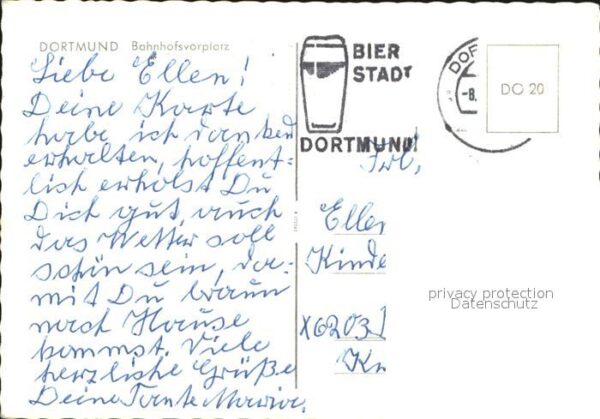 DORTMUND Bahnhofsvorplatz
Liebe Ellen!
Deine Karte
habe ich dankend
erhalten, hoffent=
lich erholst Du
Dich gut, auch
das Wetter soll
schön sein, da=
mit Du braun
nach Hause
kommst. Viele
herzliche Grüße
Deine Tante Maria.
BIER
STADT
DORTMUND
DO
-8.
DO 20
Frl.
Ellen
Kinde
privacy protection
Datenschutz
X6203